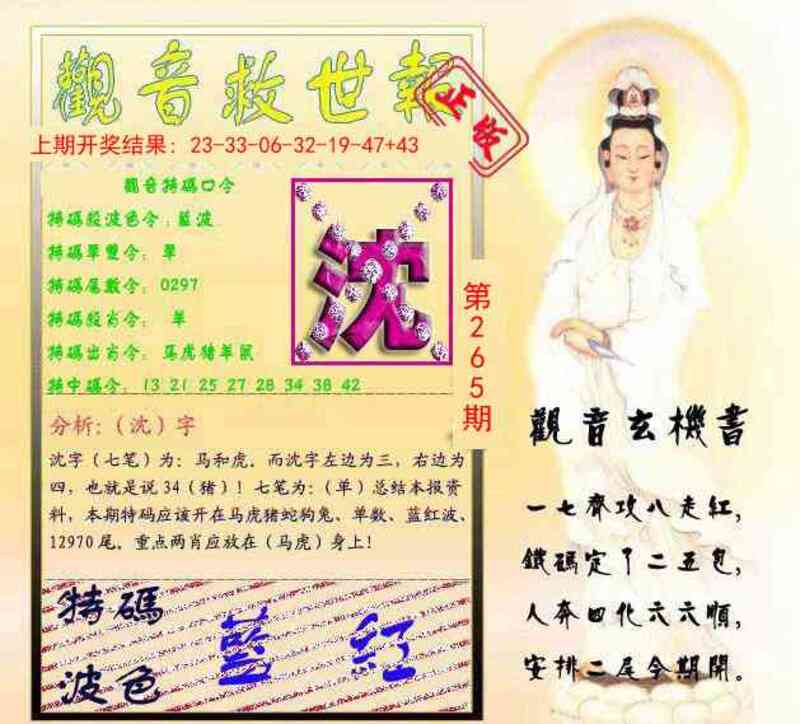 觀音救世報
正版
上期开奖结果：23-33-06-32-19-47+43
觀音特碼口令
特碼殺波色令：藍波
特碼單雙令：單
特碼尾數令：0297
特碼殺肖令：單
特碼出肖令：馬虎猪羊鼠
特中碼令：13 21 25 27 28 34 38 42
沈
第265期
分析:（沈）字
沈字（七笔）为：马和虎．而沈字左边为三，右边为
四，也就是说34（猪）！七笔为：（单）总结本报资
料，本期特码应该开在马虎猪蛇狗兔、单数、蓝红波、
12970尾．重点两肖应放在（马虎）身上！
特碼
波色
藍 紅
觀音玄機書
一七齊攻八走紅，
鐵碼定了二五包，
人奔四化六六順，
安排二尾今期開。